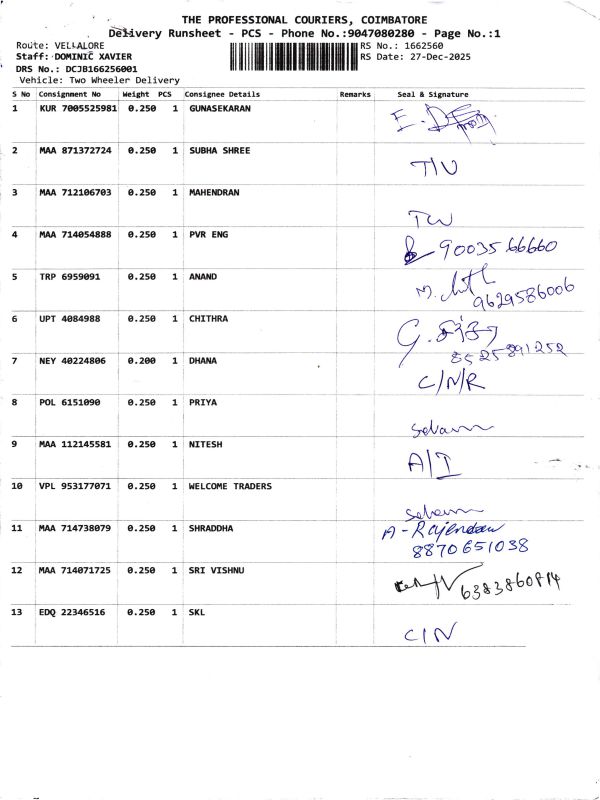 THE PROFESSIONAL COURIERS, COIMBATORE
Delivery Runsheet - PCS - Phone No.:9047080280 - Page No.:1
Route: VELLALORE
RS No.: 1662560
Staff: DOMINIC XAVIER
RS Date: 27-Dec-2025
DRS No.: DCJB166256001
Vehicle: Two Wheeler Delivery
S No Consignment No Weight PCS Consignee Details Remarks Seal & Signature
1 KUR 7005525981 0.250 1 GUNASEKARAN
2 MAA 871372724 0.250 1 SUBHA SHREE
3 MAA 712106703 0.250 1 MAHENDRAN
4 MAA 714054888 0.250 1 PVR ENG 9003566660
5 TRP 6959091 0.250 1 ANAND
9629586006
6 UPT 4084988 0.250 1 CHITHRA
8525891252
7 NEY 40224806 0.200 1 DHANA C/N/R
8 POL 6151090 0.250 1 PRIYA
9 MAA 112145581 0.250 1 NITESH A/I
10 VPL 953177071 0.250 1 WELCOME TRADERS
11 MAA 714738079 0.250 1 SHRADDHA
8870651038
12 MAA 714071725 0.250 1 SRI VISHNU
13 EDQ 22346516 0.250 1 SKL C/N